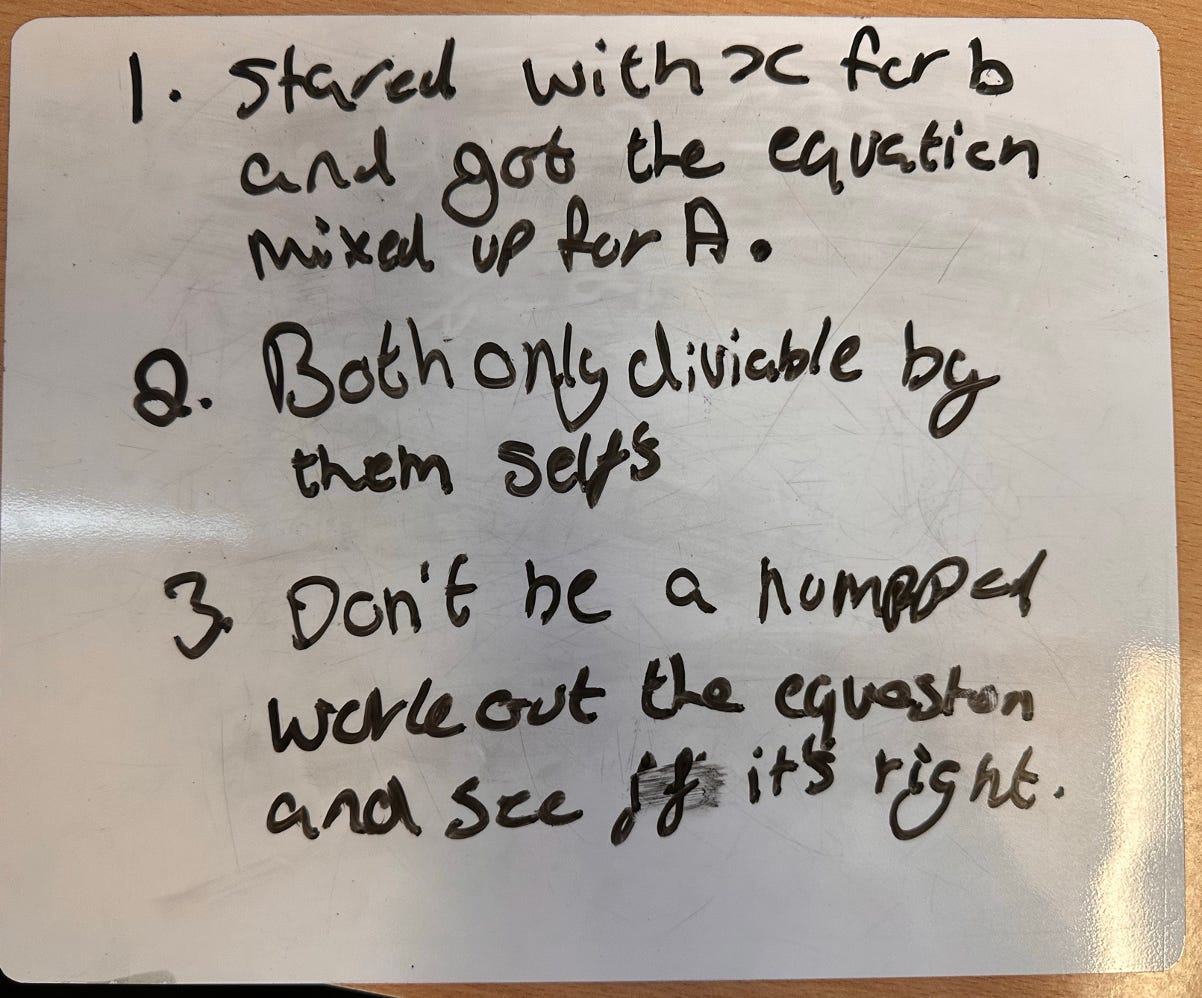 1. Stared with x for b
and got the equation
mixed up for A.
2. Both only diviable by
them selfs
3. Don't be a numpped
work out the equeston
and see if it's right.